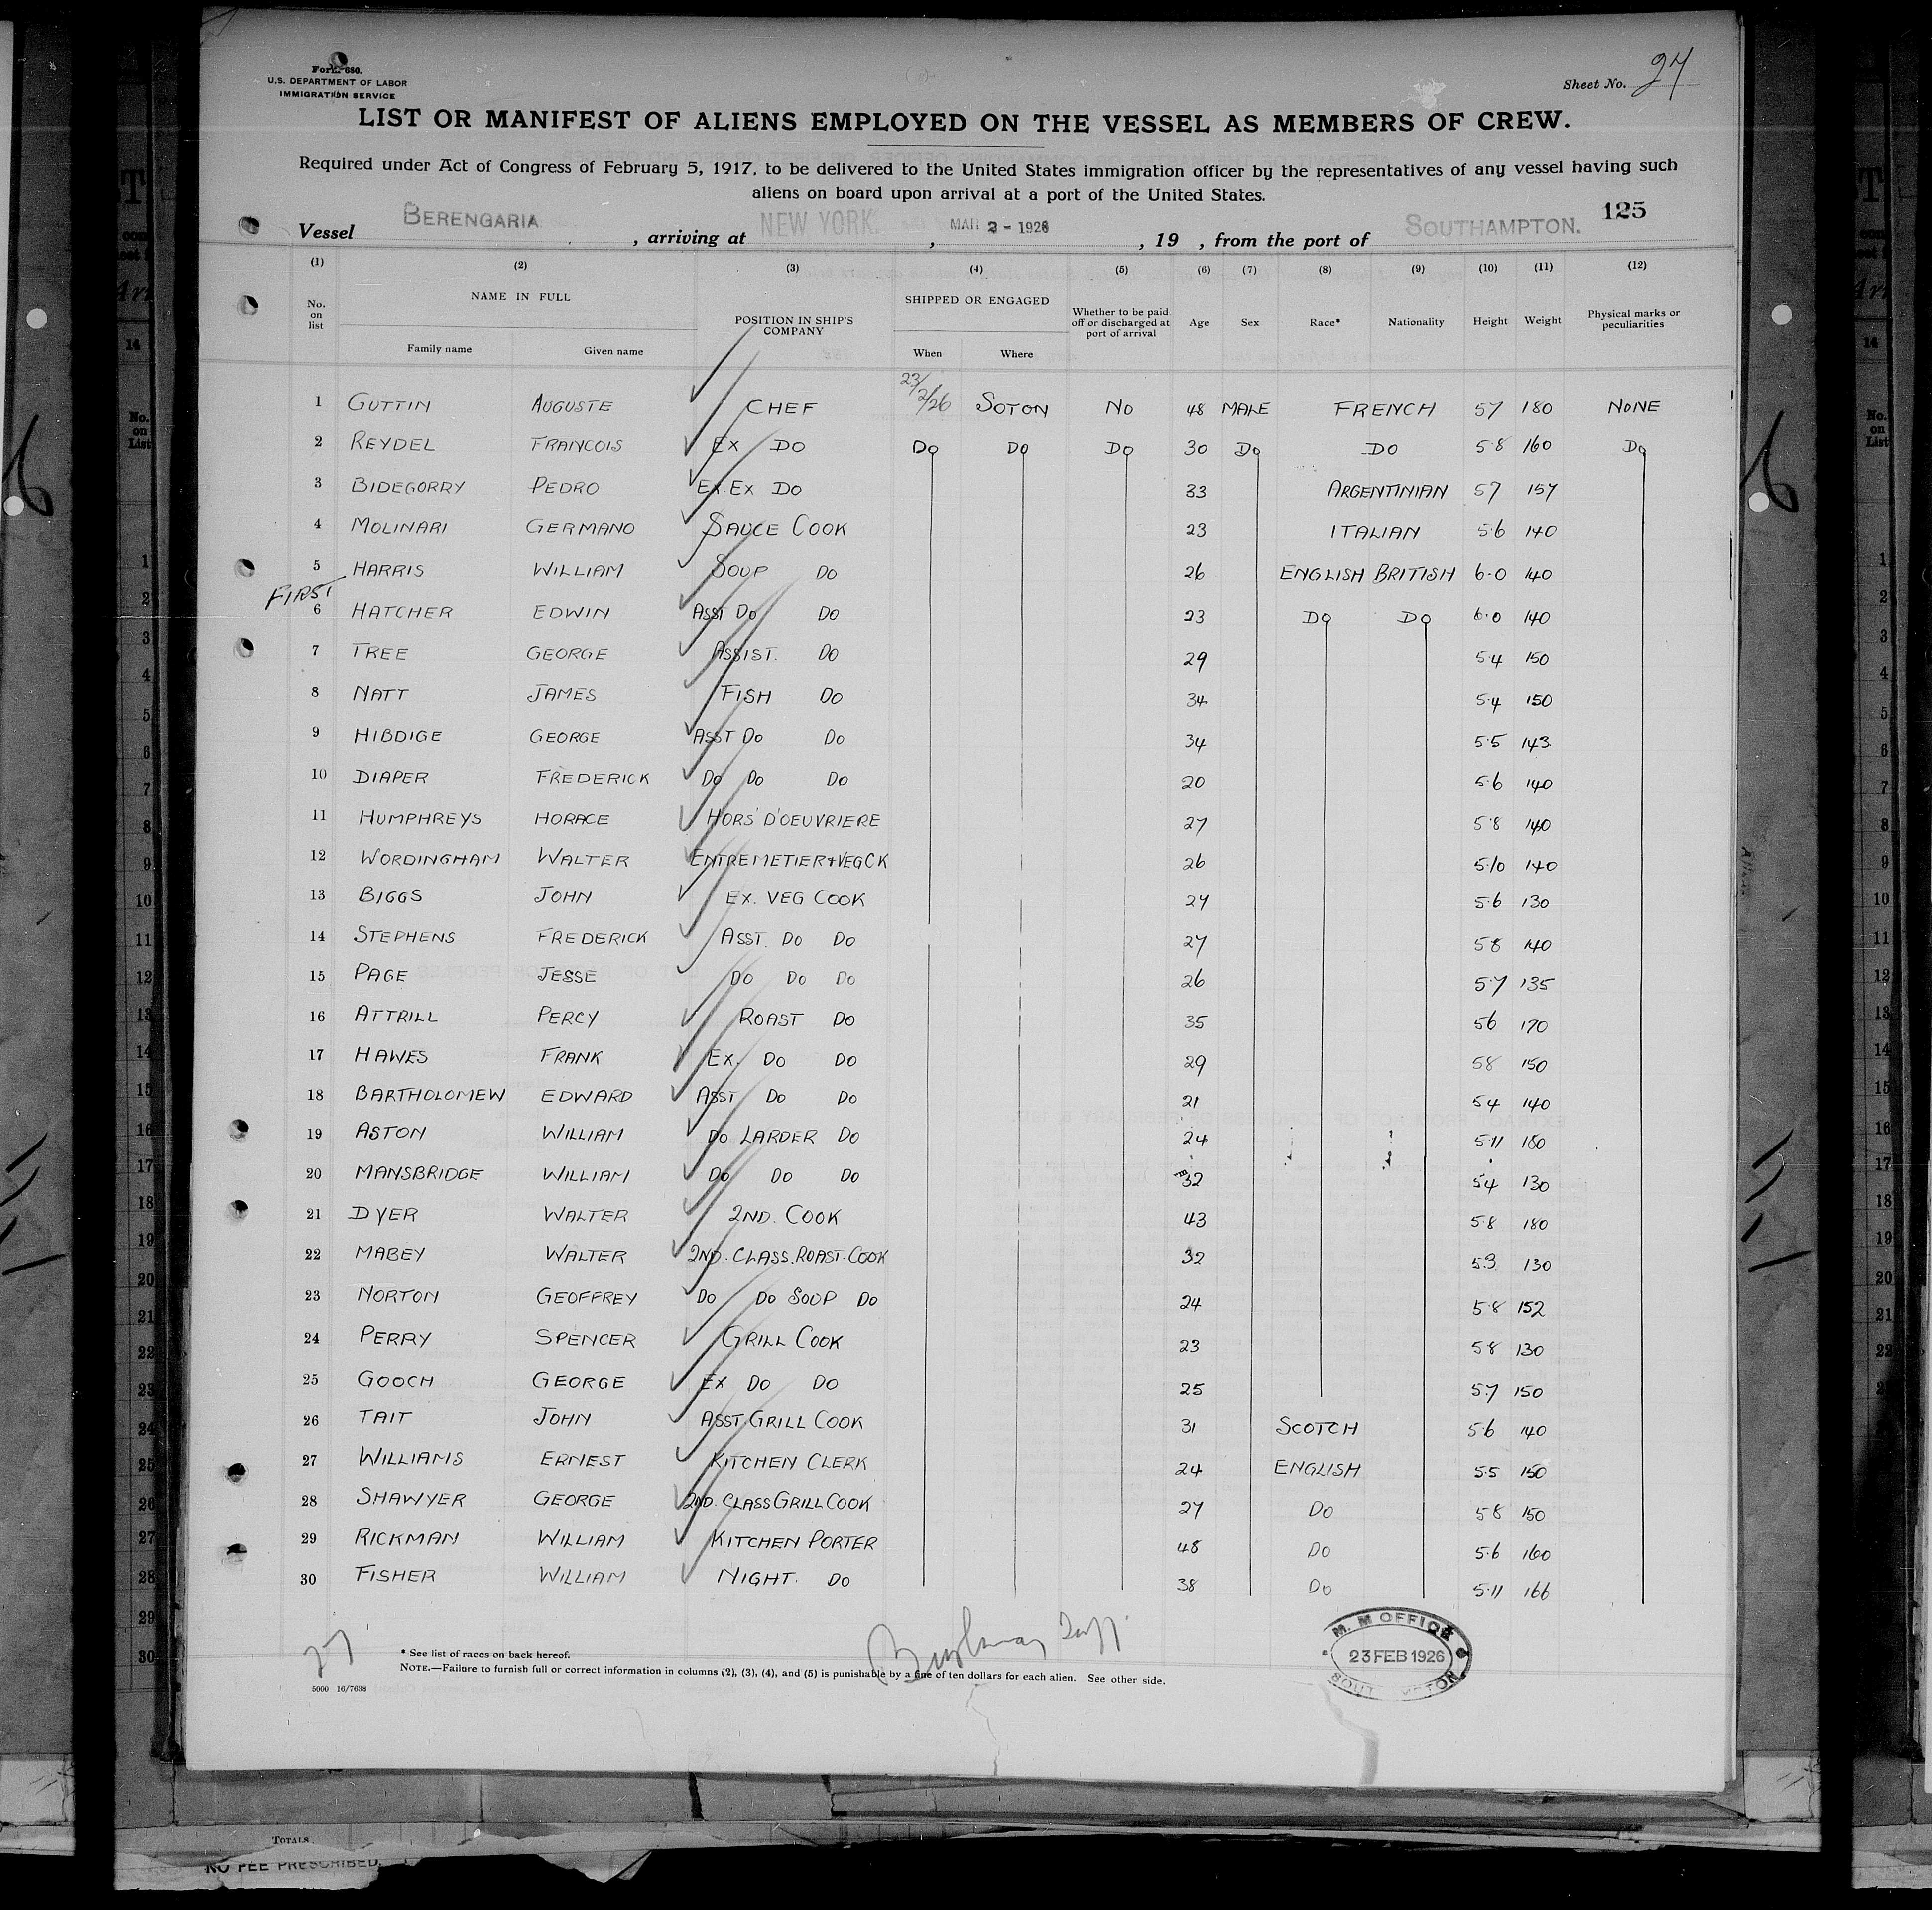 Form 680.
U.S. DEPARTMENT OF LABOR
IMMIGRATION SERVICE
Sheet No. 27
LIST OR MANIFEST OF ALIENS EMPLOYED ON THE VESSEL AS MEMBERS OF CREW.
Required under Act of Congress of February 5, 1917, to be delivered to the United States immigration officer by the representatives of any vessel having such
aliens on board upon arrival at a port of the United States.
125
Vessel BERENGARIA, arriving at NEW YORK, MAR 2 - 1926, 19 , from the port of SOUTHAMPTON.
(1) (2) (3) (4) (5) (6) (7) (8) (9) (10) (11) (12)
No. on list NAME IN FULL POSITION IN SHIP'S COMPANY SHIPPED OR ENGAGED Whether to be paid off or discharged at port of arrival Age Sex Race* Nationality Height Weight Physical marks or peculiarities
Family name Given name When Where
1 GUTTIN AUGUSTE CHEF 23/2/26 SOTON NO 48 MALE FRENCH 57 180 NONE
2 REYDEL FRANCOIS EX DO DO DO DO 30 DO DO 5·8 160 DO
3 BIDEGORRY PEDRO EX.EX DO 33 ARGENTINIAN 57 157
4 MOLINARI GERMANO SAUCE COOK 23 ITALIAN 5·6 140
5 HARRIS WILLIAM SOUP DO 26 ENGLISH BRITISH 6·0 140
FIRST
6 HATCHER EDWIN ASST DO DO 23 DO DO 6·0 140
7 TREE GEORGE ASSIST. DO 29 5·4 150
8 NATT JAMES FISH DO 34 5·4 150
9 HIBDIGE GEORGE ASST DO DO 34 5·5 143
10 DIAPER FREDERICK DO DO DO 20 5·6 140
11 HUMPHREYS HORACE HORS' D'OEUVRIERE 27 5·8 140
12 WORDINGHAM WALTER ENTREMETIER+VEGCK 26 5·10 140
13 BIGGS JOHN EX. VEG COOK 27 5·6 130
14 STEPHENS FREDERICK ASST. DO DO 27 58 140
15 PAGE JESSE DO DO DO 26 5·7 135
16 ATTRILL PERCY ROAST DO 35 56 170
17 HAWES FRANK EX. DO DO 29 58 150
18 BARTHOLOMEW EDWARD ASST DO DO 21 54 140
19 ASTON WILLIAM DO LARDER DO 24 5·11 180
20 MANSBRIDGE WILLIAM DO DO DO 32 54 130
21 DYER WALTER 2ND. COOK 43 5·8 180
22 MABEY WALTER 2ND. CLASS. ROAST. COOK 32 5·3 130
23 NORTON GEOFFREY DO DO SOUP DO 24 5·8 152
24 PERRY SPENCER GRILL COOK 23 58 130
25 GOOCH GEORGE EX DO DO 25 5·7 150
26 TAIT JOHN ASST. GRILL COOK 31 SCOTCH 5·6 140
27 WILLIAMS ERNEST KITCHEN CLERK 24 ENGLISH 5·5 150
28 SHAWYER GEORGE 2ND. CLASS GRILL COOK 27 DO 58 150
29 RICKMAN WILLIAM KITCHEN PORTER 48 DO 5·6 160
30 FISHER WILLIAM NIGHT. DO 38 DO 5·11 166
27
* See list of races on back hereof.
NOTE.—Failure to furnish full or correct information in columns (2), (3), (4), and (5) is punishable by a fine of ten dollars for each alien. See other side.
5000 16/7638
M. M OFFICE
23 FEB 1926
TOTALS
NO FEE PRESCRIBED.